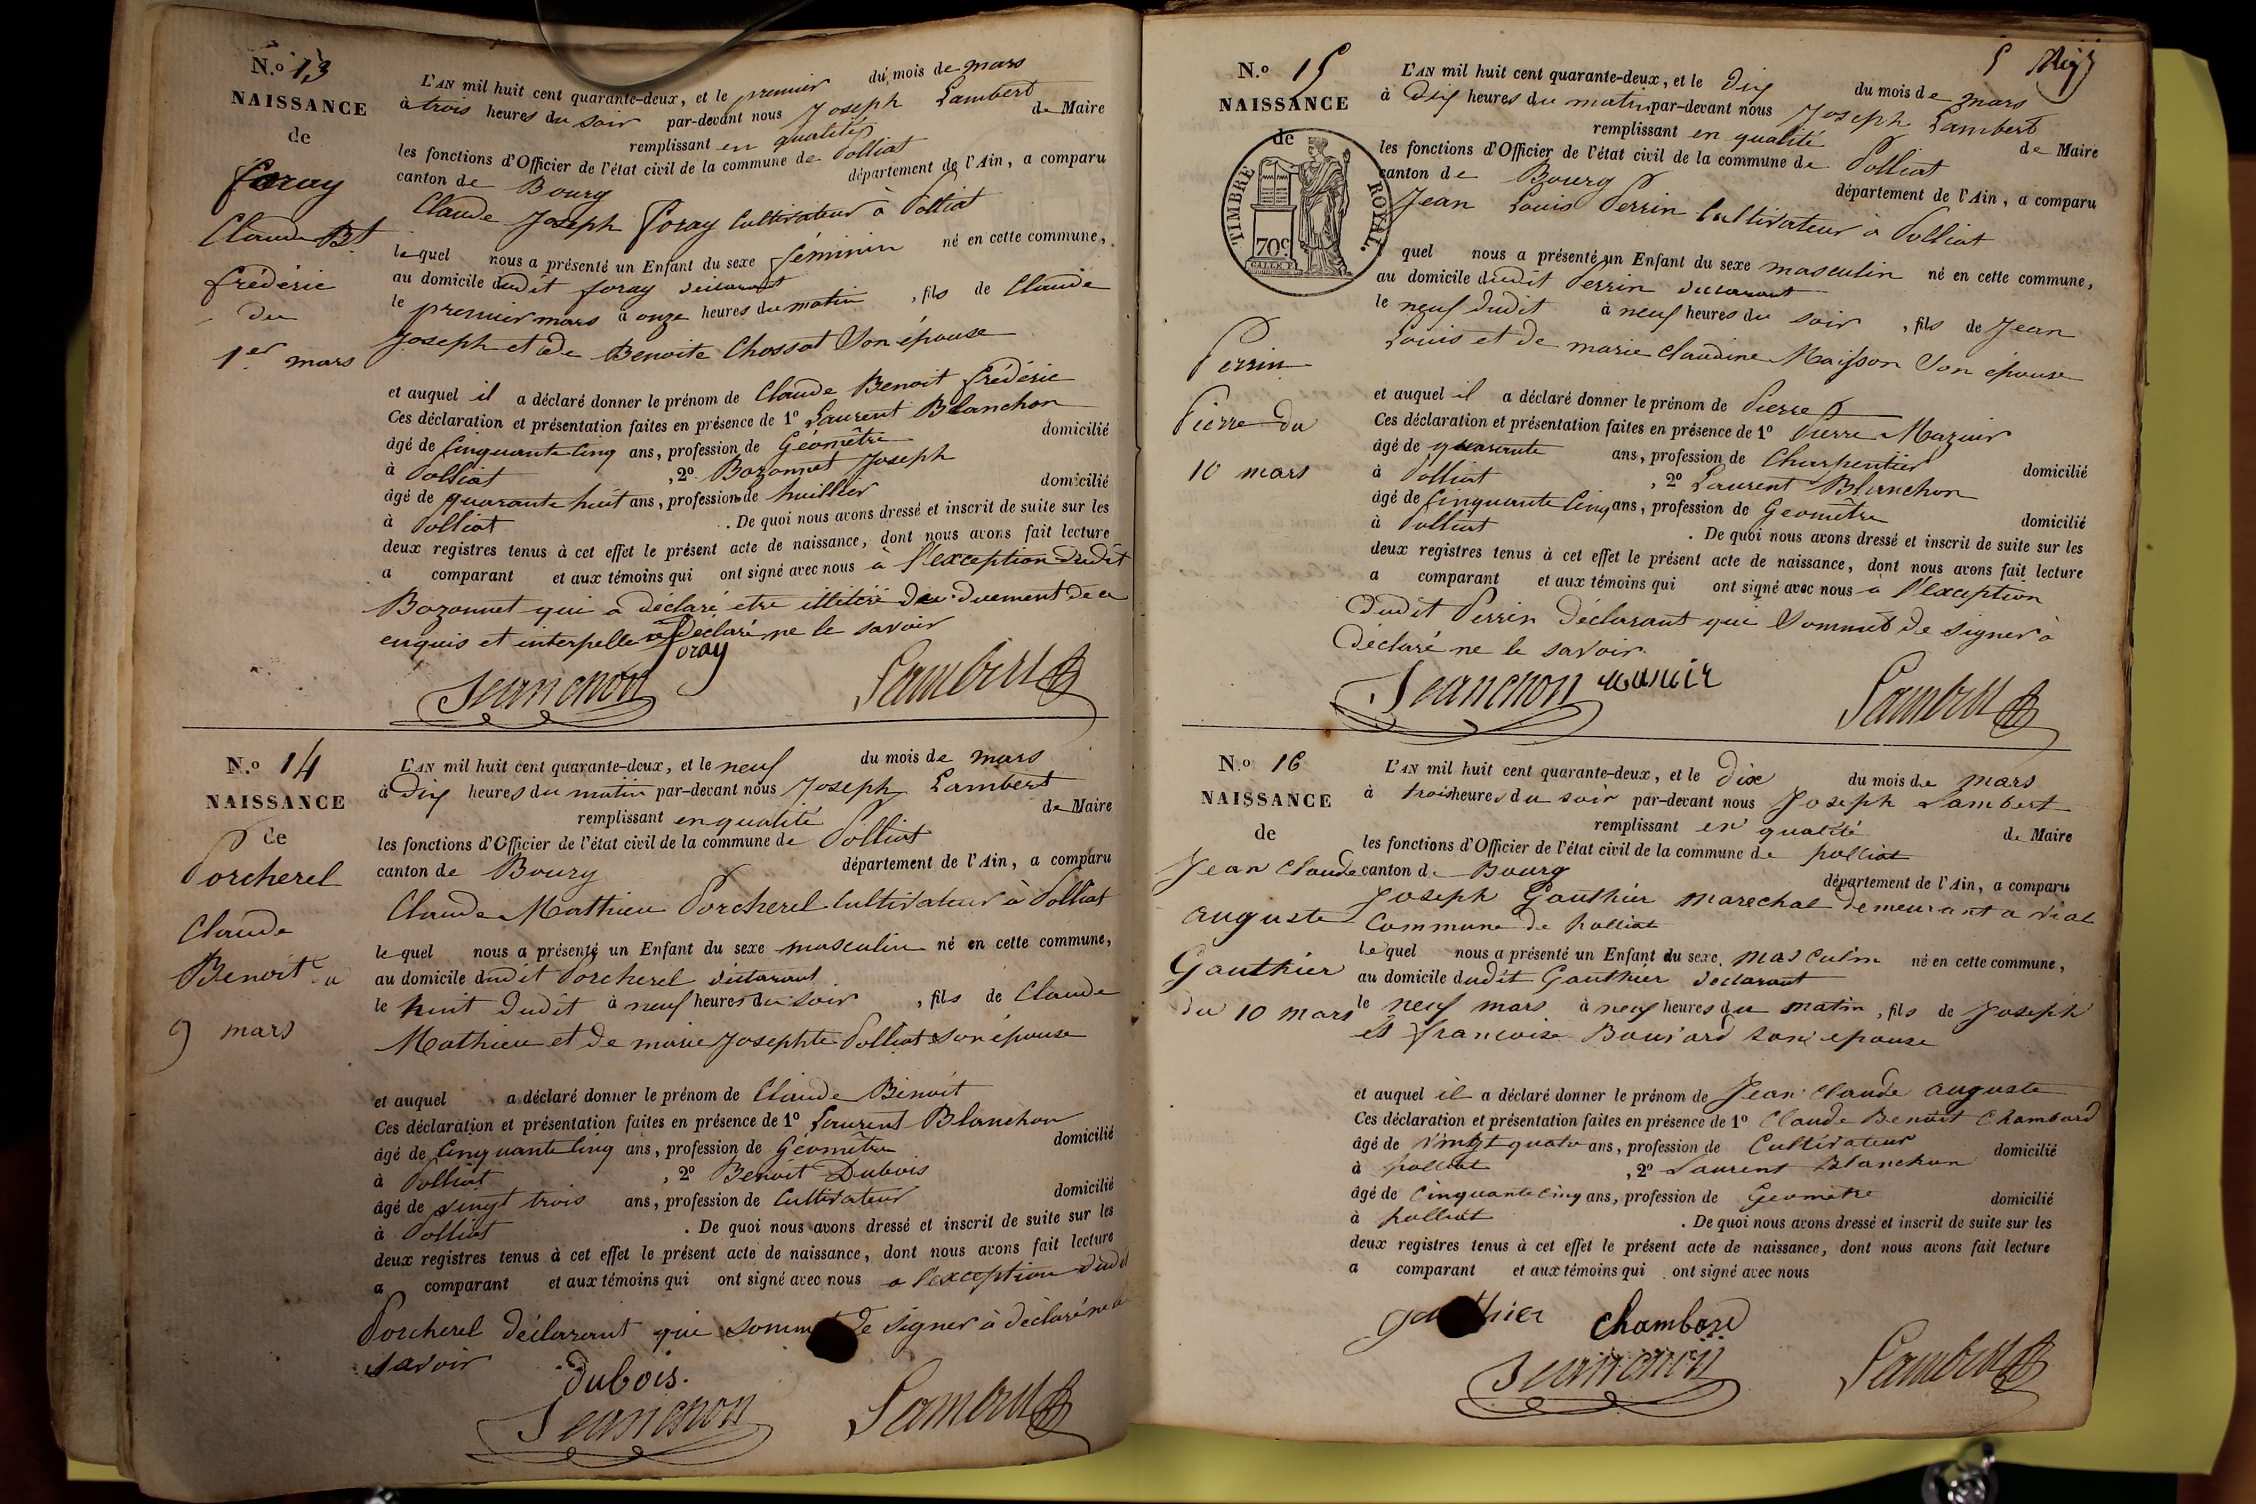 N.º 13
NAISSANCE
de
foray
Claude Bt
frédéric
du
1er mars
L'AN mil huit cent quarante-deux, et le premier du mois de mars
à trois heures du soir par-devant nous Joseph Lambert
remplissant en qualité de Maire
les fonctions d'Officier de l'état civil de la commune de Polliat
canton de Bourg département de l'Ain, a comparu
Claude Joseph foray Cultivateur à Polliat
lequel nous a présenté un Enfant du sexe féminin né en cette commune,
au domicile dudit foray déclarant
le premier mars à onze heures du matin, fils de Claude
Joseph et de Benoite Chossat Son épouse
et auquel il a déclaré donner le prénom de Claude Benoit frédéric
Ces déclaration et présentation faites en présence de 1º Laurent Blanchon
âgé de Cinquante Cinq ans, profession de Géomêtre domicilié
à Polliat, 2º Bozonnet Joseph
âgé de quarante huit ans, profession de huillier domicilié
à Polliat. De quoi nous avons dressé et inscrit de suite sur les
deux registres tenus à cet effet le présent acte de naissance, dont nous avons fait lecture
a comparant et aux témoins qui ont signé avec nous à l'exception dudit
Bozonnet qui a déclaré etre illitéré de duement de ce
enquis et interpellé a déclaré ne le savoir
foray
Blanchon Lambert
N.º 14
NAISSANCE
de
Porcherel
Claude
Benoit du
9 mars
L'AN mil huit cent quarante-deux, et le neuf du mois de mars
à Dix heures du matin par-devant nous Joseph Lambert
remplissant en qualité de Maire
les fonctions d'Officier de l'état civil de la commune de Polliat
canton de Bourg département de l'Ain, a comparu
Claude Mathieu Porcherel Cultivateur à Polliat
lequel nous a présenté un Enfant du sexe masculin né en cette commune,
au domicile dudit Porcherel déclarant
le huit dudit à neuf heures du soir, fils de Claude
Mathieu et de marie Josephte Polliat Son épouse
et auquel a déclaré donner le prénom de Claude Benoit
Ces déclaration et présentation faites en présence de 1º Laurent Blanchon
âgé de Cinquante Cinq ans, profession de Géomêtre domicilié
à Polliat, 2º Benoit Dubois
âgé de vingt trois ans, profession de Cultivateur domicilié
à Polliat. De quoi nous avons dressé et inscrit de suite sur les
deux registres tenus à cet effet le présent acte de naissance, dont nous avons fait lecture
a comparant et aux témoins qui ont signé avec nous a l'exception dudit
Porcherel déclarant qui sommé de signer à déclaré ne le
savoir
Dubois.
Blanchon Lambert
5
N.º 15
NAISSANCE
de
TIMBRE ROYAL.
70c
Perrin
Pierre du
10 mars
L'AN mil huit cent quarante-deux, et le Dix du mois de mars
à Dix heures du matin par-devant nous Joseph Lambert
remplissant en qualité de Maire
les fonctions d'Officier de l'état civil de la commune de Polliat
canton de Bourg département de l'Ain, a comparu
Jean Louis Perrin Cultivateur à Polliat
quel nous a présenté un Enfant du sexe masculin né en cette commune,
au domicile dudit Perrin déclarant
le neuf dudit à neuf heures du soir, fils de Jean
Louis et de marie Claudine Moisson Son épouse
et auquel il a déclaré donner le prénom de Pierre
Ces déclaration et présentation faites en présence de 1º Pierre Mazuir
âgé de quarante ans, profession de Charpentier domicilié
à Polliat, 2º Laurent Blanchon
âgé de Cinquante Cinq ans, profession de Géomêtre domicilié
à Polliat. De quoi nous avons dressé et inscrit de suite sur les
deux registres tenus à cet effet le présent acte de naissance, dont nous avons fait lecture
a comparant et aux témoins qui ont signé avec nous à l'exception
dudit Perrin Déclarant qui Sommé de signer à
déclaré ne le savoir
Blanchon mazuir Lambert
N.º 16
NAISSANCE
de
Jean Claude
auguste
Gauthier
du 10 mars
L'AN mil huit cent quarante-deux, et le Dix du mois de mars
à trois heures du soir par-devant nous Joseph Lambert
remplissant en qualité de Maire
les fonctions d'Officier de l'état civil de la commune de polliat
canton de Bourg département de l'Ain, a comparu
Joseph Gauthier marechal demeurant a vial
Commune de polliat
lequel nous a présenté un Enfant du sexe masculin né en cette commune,
au domicile dudit Gauthier déclarant
le neuf mars à neuf heures du matin, fils de Joseph
et françoise Bouvard son epouse
et auquel il a déclaré donner le prénom de Jean Claude auguste
Ces déclaration et présentation faites en présence de 1º Claude Benoit Chambard
âgé de vingt quatre ans, profession de Cultivateur domicilié
à polliat, 2º Laurent Blanchon
âgé de Cinquante cinq ans, profession de Geometre domicilié
à polliat. De quoi nous avons dressé et inscrit de suite sur les
deux registres tenus à cet effet le présent acte de naissance, dont nous avons fait lecture
a comparant et aux témoins qui ont signé avec nous
gauthier Chambard
Blanchon Lambert